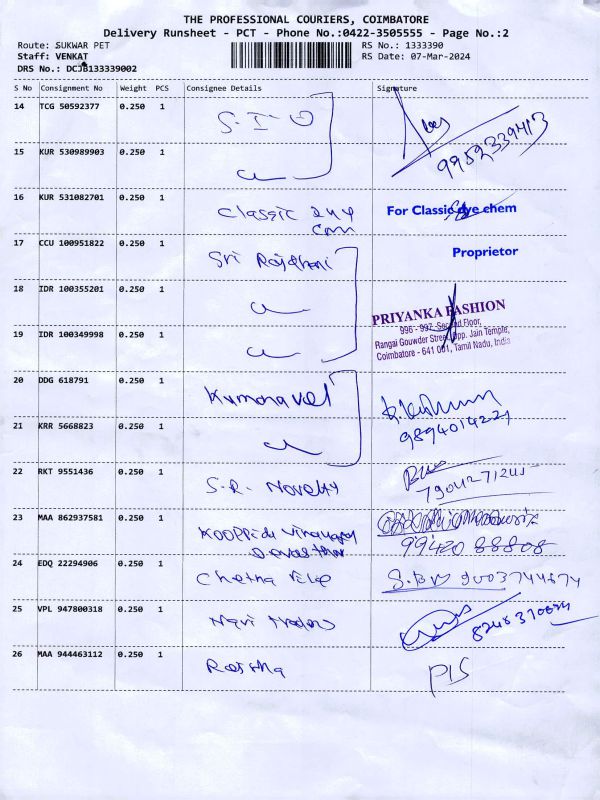 THE PROFESSIONAL COURIERS, COIMBATORE
Delivery Runsheet - PCT - Phone No.:0422-3505555 - Page No.:2
Route: SUKWAR PET
RS No.: 1333390
Staff: VENKAT
RS Date: 07-Mar-2024
DRS No.: DCJB133339002
S No Consignment No Weight PCS Consignee Details Signature
14 TCG 50592377 0.250 1 S. I. O
9952339413
15 KUR 530989903 0.250 1
16 KUR 531082701 0.250 1 Classic dye
For Classic dye chem
Proprietor
17 CCU 100951822 0.250 1 Sri Rajdhani
18 IDR 100355201 0.250 1
PRIYANKA FASHION
996 - 997, Second Floor,
Rangai Gouwder Street, Opp. Jain Temple,
Coimbatore - 641 001, Tamil Nadu, India
19 IDR 100349998 0.250 1
20 DDG 618791 0.250 1 Kumaravel
9894014221
21 KRR 5668823 0.250 1
22 RKT 9551436 0.250 1 S.R. Novelty
23 MAA 862937581 0.250 1 Vinayagar
99420 88808
24 EDQ 22294906 0.250 1 Chetna
9003744674
25 VPL 947800318 0.250 1 Traders
26 MAA 944463112 0.250 1
P/S